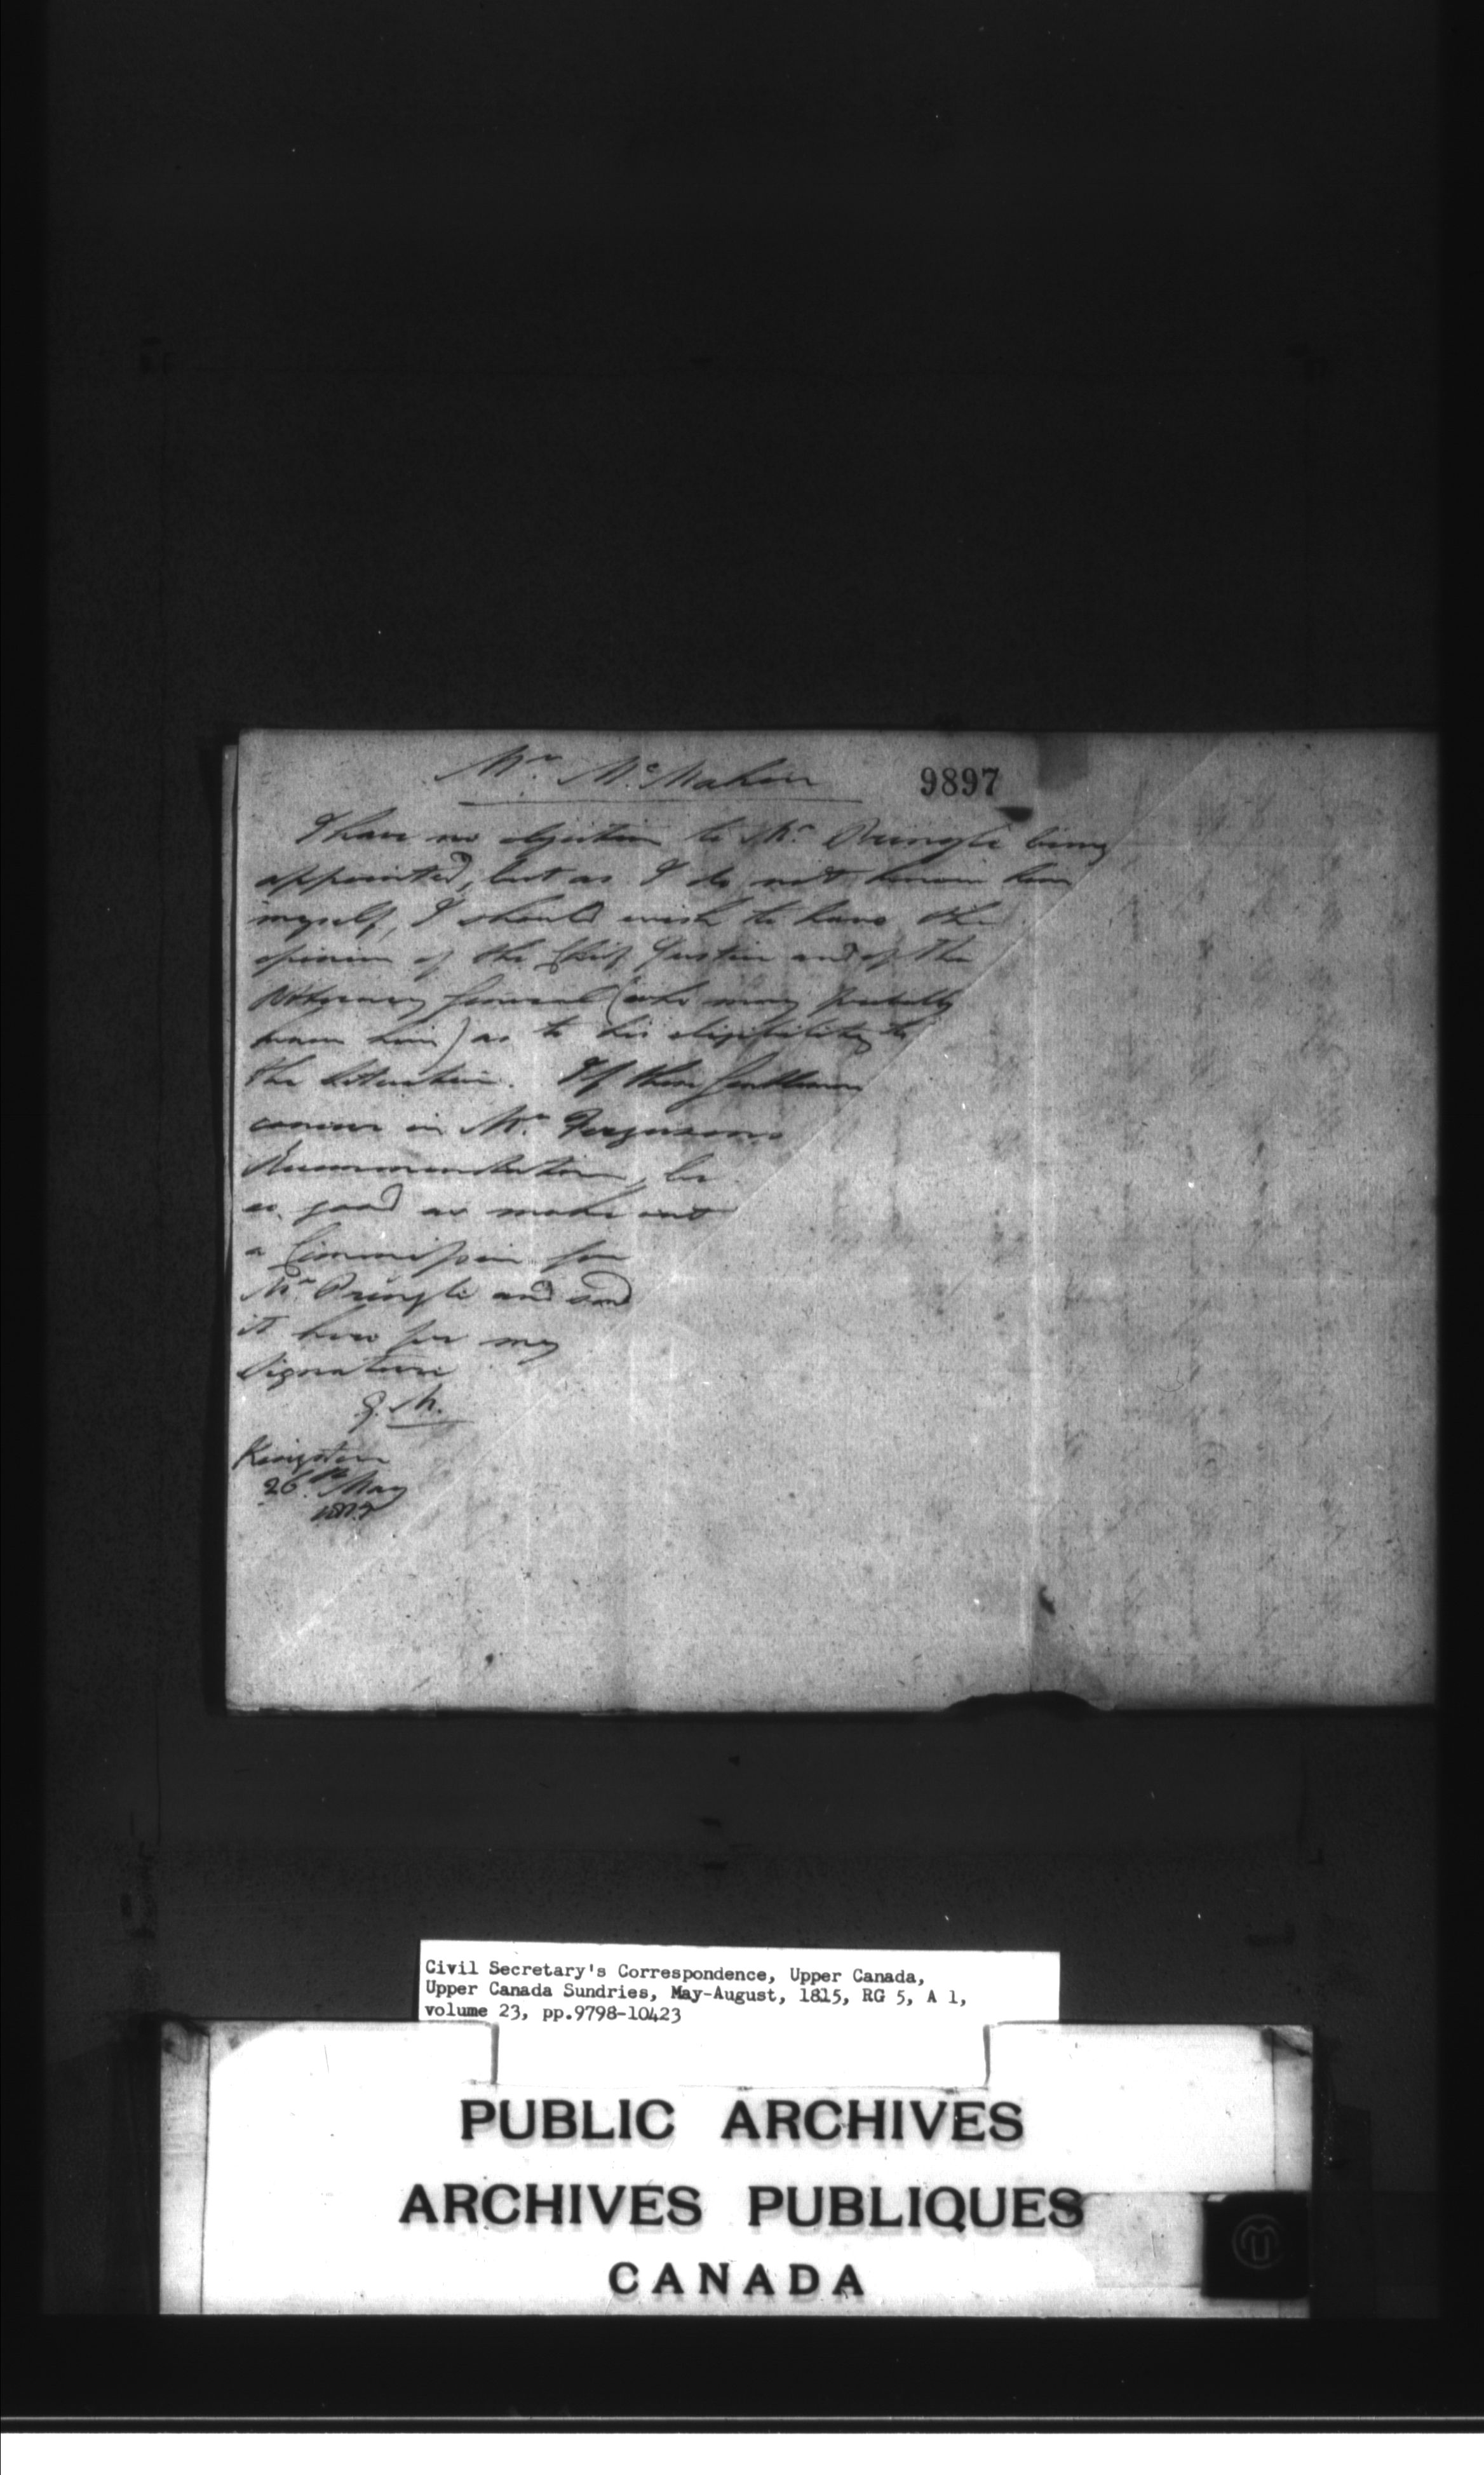 Mr. McMahon
9897
I have no objection to Mr. Pringle being
appointed, but as I do not know him
myself, I should wish to have the
opinion of the Chief Justice and of the
Attorney General (who may probably
know him) as to his eligibility to
the Situation. If these Gentlemen
concur in Mr. Fergusons
Recommendation, be
so good as make out
a Commission for
Mr. Pringle and send
it here for my
Signature
G. M.
Kingston
26th May
Civil Secretary's Correspondence, Upper Canada,
Upper Canada Sundries, May-August, 1815, RG 5, A 1,
volume 23, pp.9798-10423
PUBLIC ARCHIVES
ARCHIVES PUBLIQUES
CANADA